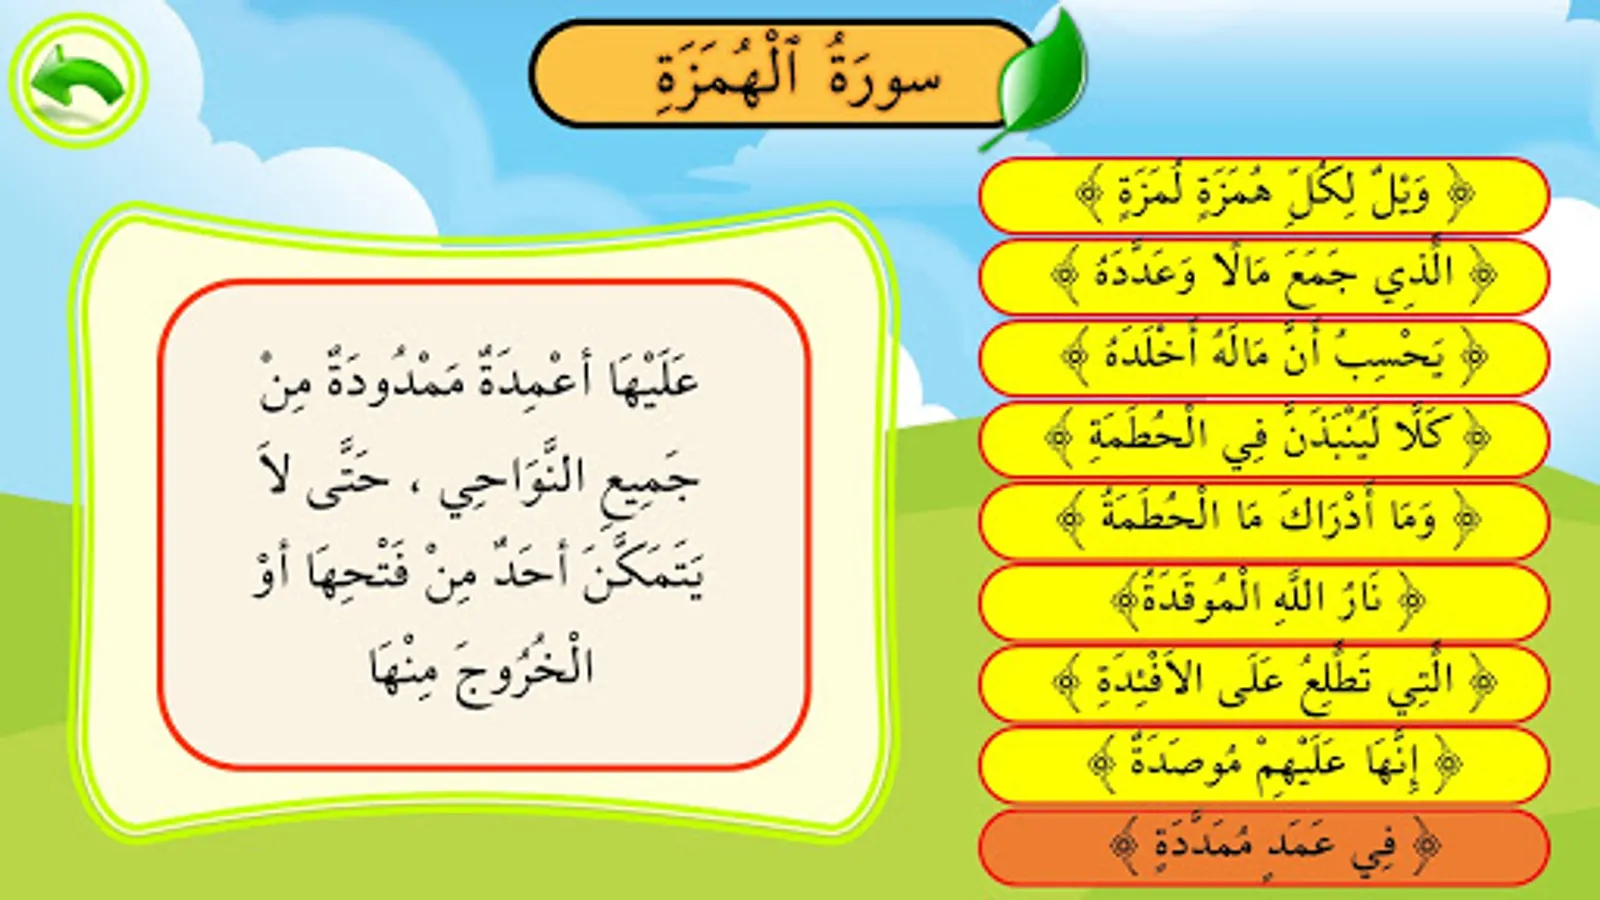 سورَةُ ٱلْهُمَزَةِ
﴿ وَيْلٌ لِكُلِّ هُمَزَةٍ لُمَزَةٍ ﴾
﴿ الَّذِي جَمَعَ مَالًا وَعَدَّدَهُ ﴾
﴿ يَحْسِبُ أَنَّ مَالَهُ أَخْلَدَهُ ﴾
﴿ كَلَّا لَيُنْبَذَنَّ فِي الْحُطَمَةِ ﴾
﴿ وَمَا أَدْرَاكَ مَا الْحُطَمَةُ ﴾
﴿ نَارُ اللَّهِ الْمُوقَدَةُ﴾
﴿ الَّتِي تَطَّلِعُ عَلَى الاَفْئِدَةِ ﴾
﴿ إِنَّهَا عَلَيْهِمْ مُوصَدَةٌ ﴾
﴿ فِي عَمَدٍ مُمَدَّدَةٍ ﴾
عَلَيْهَا أعْمِدَةٌ مَمْدُودَةٌ مِنْ
جَمِيعِ النَّوَاحِي ، حَتَّى لاَ
يَتَمَكَّنَ أحَدٌ مِنْ فَتْحِهَا أوْ
الْخُرُوجَ مِنْهَا